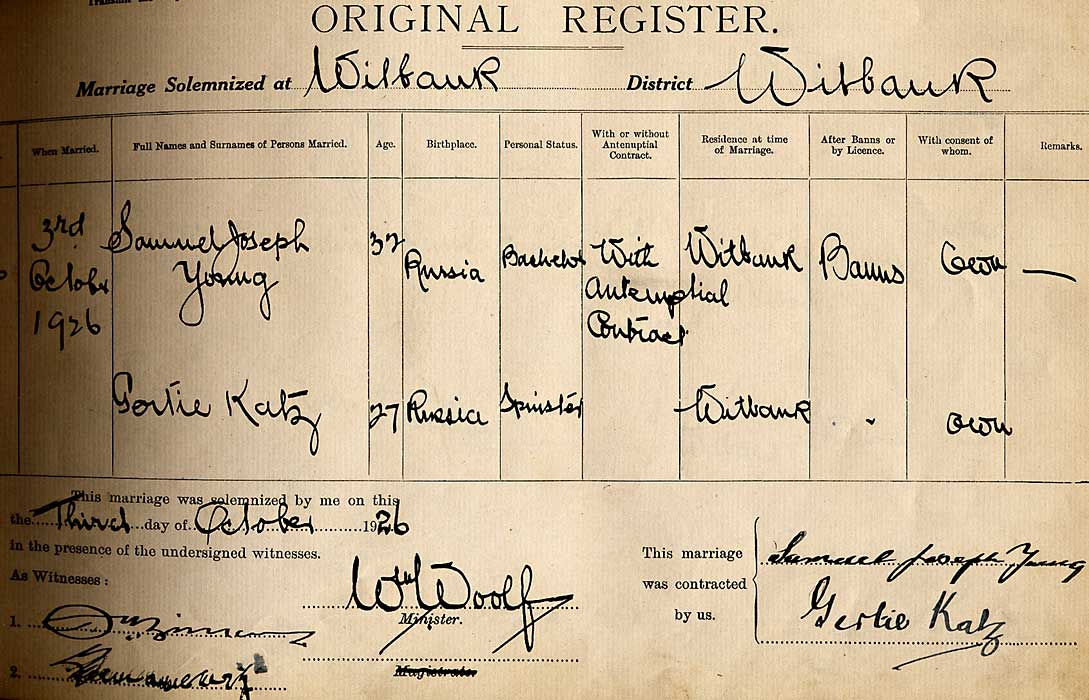 ORIGINAL REGISTER.
Marriage Solemnized at Witbank District Witbank
When Married. Full Names and Surnames of Persons Married. Age. Birthplace. Personal Status. With or without Antenuptial Contract. Residence at time of Marriage. After Banns or by Licence. With consent of whom. Remarks.
3rd October 1926 Samuel Joseph Young 32 Russia Bachelor With Antenuptial Contract Witbank Banns Own —
Gertie Katz 27 Russia Spinster Witbank " own
This marriage was solemnized by me on this
the Third day of October 1926
in the presence of the undersigned witnesses.
As Witnesses :
1.
2.
Wm Woolf
Minister.
Magistrate.
This marriage was contracted by us.
Samuel Joseph Young
Gertie Katz